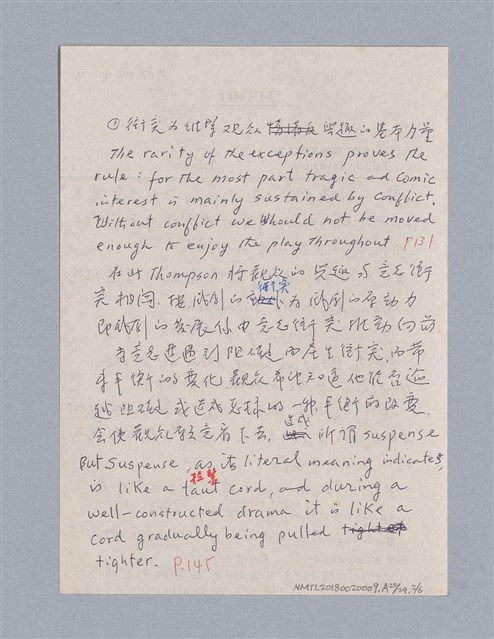 ① 衝突為維繫观众興趣的基本力量
The rarity of the exceptions proves the
rule: for the most part tragic ad comic
interest is mainly sustained by conflict.
Without conflict we should not be moved
enough to enjoy the play throughout P131
在此 Thompson 將觀众的興趣与意志衝
突相関 視戏劇的衝突為戏劇的原动力
即戏劇的发展係由意志衝突推动向前
意志遭遇到阻碍而產生衝突,而帶
來平衡的变化 觀众希望知道他能否
越阻碍或造成怎樣的 平衡的改变
会使觀众 看下去, 造成 所謂 suspense
But suspense, as its literal meaning indicates,
is like a taut cord, and during a
拉緊
well-constructed drama it is like a
cord gradually being pulled tighter
tighter. P.145
NMTL20180020009